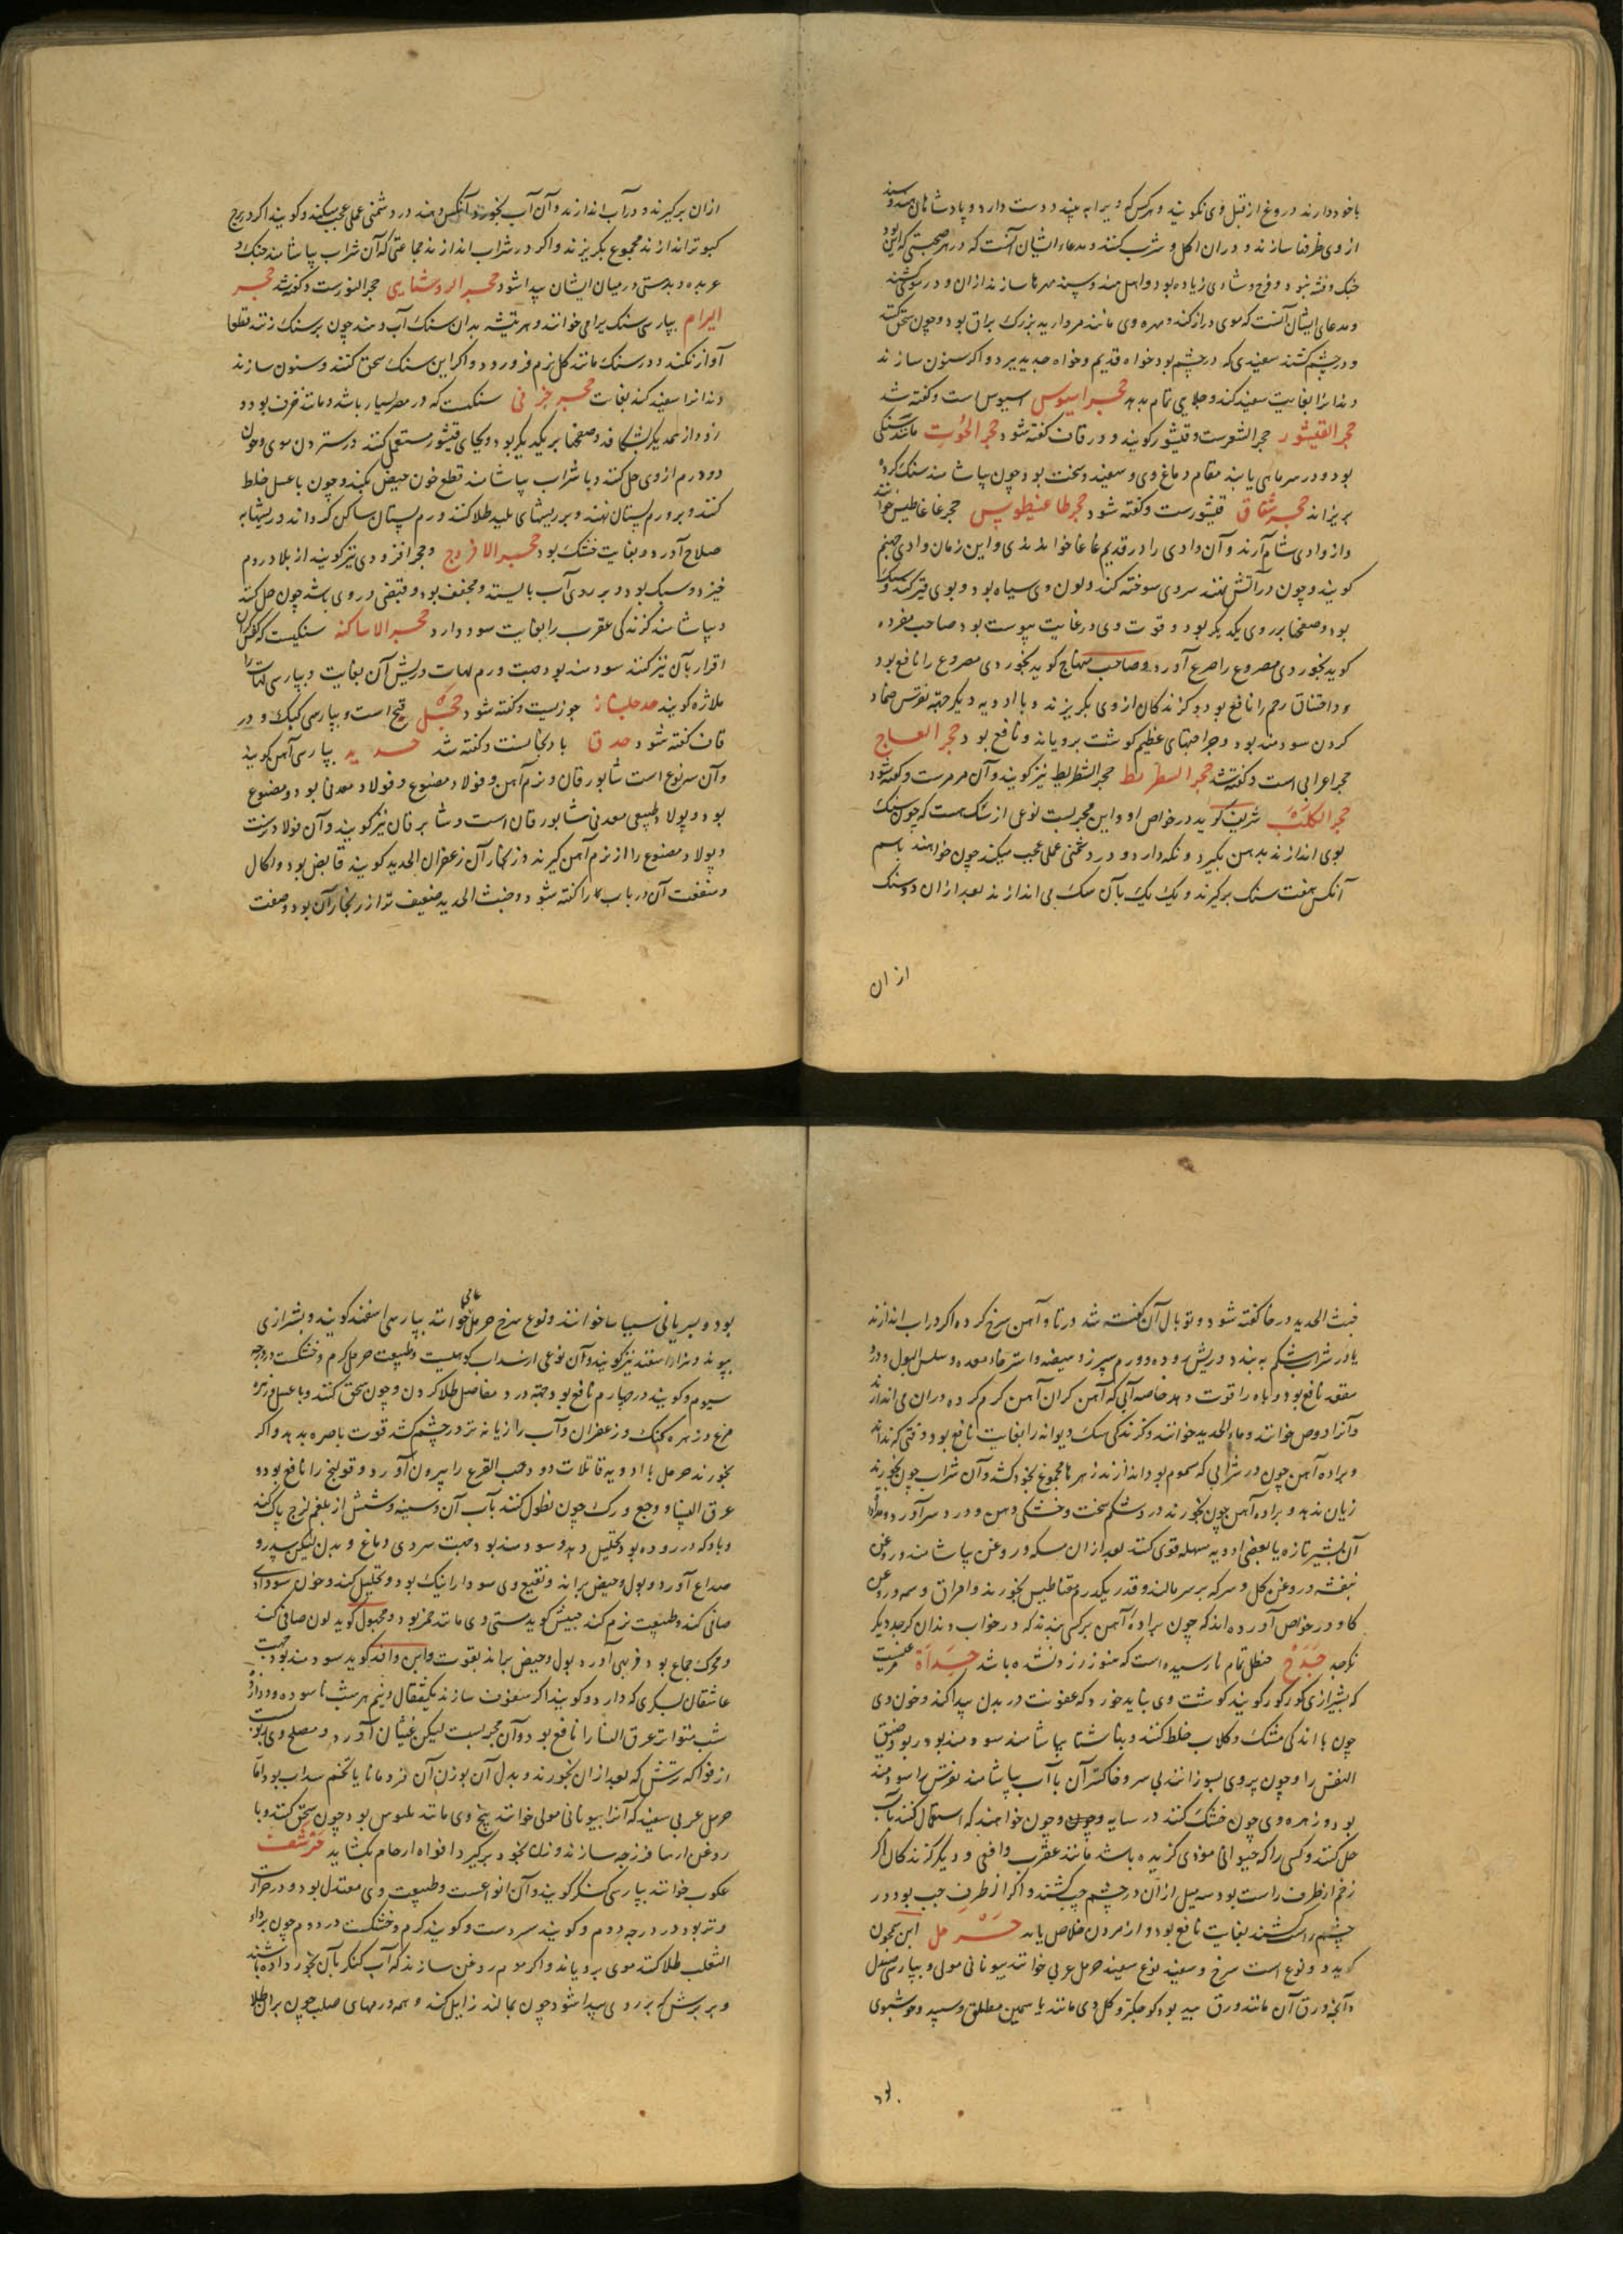 با خود دارند دروغ از قبل وی نکویند و هرکس که ویرا به بیند دوست دارد و پادشاهان
از وی ظرفها سازند و دران اکل و شرب کنند و مدعاء ایشان آنست که در هر صحبتی که این بود
جنک و فتنه نبود و فرح و شادی زیاده بود و اهل هند و سند مهرها سازند ازان و در کوش کشند
و مدعای ایشان آنست که موی دراز کند و مهره وی مانند مروارید بزرک براق بود و چون سحق کنند
و در چشم کشند سفیدی که در چشم بود خواه قدیم و خواه جدید ببرد و اکر سنون سازند
دندانرا بغایت سفید کند و جلای تمام بدهد حجر اسیوس اسیوس است و کفته شد
حجر القیشور حجر الشعرست و قیشور کویند و در قاف کفته شود حجر الحوت مانند سنکی
بود و در سر ماهی یابند مقام دماغ وی و سفید و سخت بود چون بیاشامند سنک کرده
بریزاند حجر شقاق قیشورست و کفته شود حجر طاغیطوس حجر غاغاطیس خوانند
و از وادی شام آرند و آن وادی را در قدیم غاغا خواندندی و این زمان وادی جهنم
کویند و چون در آتش نهند سروی سوخته کند و لون وی سیاه بود و بوی قیر کند و سبک
بود و صفحها بر روی یکدیکر بود و قوت وی در غایت یبوست بود صاحب مفرده
کوید بخور وی مصروع را صرع آورد و صاحب منهاج کوید بخور وی مصروع را نافع بود
و اختناق رحم را نافع بود و کزندکان از وی بکریزند و با ادویه دیکر جهت نقرس ضماد
کردن سودمند بود و جراحتهای عظیم کوشت برویاند و نافع بود حجر العاج
حجر اعرابی است و کفته شد حجر السطریط حجر الشطریط نیز کویند و آن مرمرست و کفته شود
حجر الکلب شریف کوید در خواص او و این مجربست نوعی از سک هست که چون سنک
بوی اندازند بدهن بکیرد و نکه دارد و در دشمنی عملی عجب میکند چون خواهند باسم
آنکس هفت سنک برکیرند و یک یک بآن سک می اندازند بعد ازان دو سنک
از ان
ازان برکیرند و در آب اندازند و آن آب بخورد آنکس دهند در دشمنی عملی عجب میکند و کویند اکر در برج
کبوتر اندازند مجموع بکریزند و اکر در شراب اندازند جماعتی که آن شراب بیاشامند جنک و
عربده و بدمستی در میان ایشان پیدا شود حجر الروشنایی حجر النورست و کفته شد حجر
ابرام بپارسی سنک برام خوانند و هر تیشه بدان سنک آب دهند چون بر سنک زنند قطعا
آواز نکند و در سنک مانند کل نرم فرو رود و اکر این سنک سحق کنند و سنون سازند
دندانرا سفید کند بغایت حجر خزفی سنکیست که در مصر بسیار باشد و مانند خزف بود و
زود از یکدیکر بشکافد و صفحها بر یکدیکر بود و بجای قیشور مستعمل کنند در ستردن موی و چون
دو درم از وی حل کنند و با شراب بیاشامند قطع خون حیض بکند و چون با عسل خلط
کنند و بر ورم پستان نهند و بر ریشهای پلید طلا کنند ورم پستان ساکن کرداند و ریشها به
صلاح آورد و بغایت خشک بود حجر الافروج و حجر افزودی نیز کویند از بلاد روم
خیزد و سبک بود و بر روی آب بایستد و مجفف بود و قبضی در وی باشد چون حل کنند
و بیاشامند کزندکی عقرب را بغایت سود دارد حجر الاساکفه سنکیست که کفشکران
اقرار بآن تیز کنند سودمند بود جهت ورم لهات و ریش آن بغایت و بپارسی لهات را
ملازه کویند حدجلیشاز جوزیست و کفته شود حجل قبج است و بپارسی کبک و در
قاف کفته شود حدق بادنجانست و کفته شد حدید بپارسی آهن کویند
و آن سه نوع است شابورقان و نرم آهن و فولاد مصنوع و فولاد معدنی بود و مصنوع
بود و پولاد طبیعی معدنی شابورقان است و شابرقان نیز کویند و آن فولاد نرست
و پولاد مصنوع را از نرم آهن کیرند و زنکار آن زعفران الحدید کویند قابض بود و اکال
و منفعت آن در باب زا کفته شود و خبث الحدید ضعیف تر از زنکار آن بود و صفت
خبث الحدید در خا کفته شود و توبال آن کفته شد در تا و آهن سرخ کرده اکر در آب اندازند
یا در شراب شکم به بندد و ریش روده و ورم سپرز و هیضه و استرخاء معده و سلس البول و درد
مقعد نافع بود و باه را قوت دهد خاصه آبی که آهن کران آهن کرم کرده دران می اندازند
و آنرا دوص خوانند و ماء الحدید خوانند و کزندکی سک دیوانه را بغایت نافع بود وقتی که ندانند
و براده آهن چون در شرابی که مسموم بود اندازند زهر را مجموع بخود کشد و آن شراب چون بخورند
زیان ندهد و براده آهن چون بخورند درد شکم سخت و خشکی دهن و درد سر آورد و مداواء
آن بشیر تازه یا بعضی ادویه مسهله قوی کنند بعد ازان مسکه و روغن بیاشامند و روغن
بنفشه و روغن کل و سرکه بر سر مالند و قدر یکدرم مقناطیس بخورند و امراق و سمه و روغن
کاو و در خواص آورده اند که چون براده آهن بر کسی بندند که در خواب دندان کرچد دیکر
نکرچد حدج حنظل تمام نارسیده است که هنوز زرد نشده باشد حدأة مرغیست
که بشیرازی کورکور کویند کوشت وی نباید خورد که عفونت در بدن پیدا کند و خون وی
چون با اندکی مشک و کلاب خلط کنند و بناشتا بیاشامند سودمند بود ربو و ضیق
النفس را و چون پر وی بسوزانند بی سر و خاکستر آن با آب بیاشامند نقرس را سودمند
بود و زهره وی چون خشک کنند در سایه و چون خواهند که استعمال کنند بآب
حل کنند و کسی را که حیوانی موذی کزیده باشد مانند عقرب و افعی و دیکر کزندکان اکر
زخم از طرف راست بود سه میل ازان در چشم چپ کشند و اکر از طرف چپ بود در
چشم راست کشند بغایت نافع بود و از مردن خلاص یابد حرمل ابن بجون
کوید دو نوع است سرخ و سفید نوع سفید حرمل عربی خوانند بیونانی مولی و بپارسی صندل
دانجه ورق آن مانند ورق بید بود کوچکتر و کل وی مانند یاسمین مطلق و سپید و خوشبوی
بود و بسریانی سیبا ساخوانند و نوع سرخ حرمل عامی خوانند بپارسی اسفند کویند و بشیرازی
سیوم و کویند در چهارم نافع بود جهت درد مفاصل طلا کردن و چون سحق کنند و با عسل و زهره
مرغ و زهره کبک و زعفران و آب رازیانه تر در چشم کشند قوت باصره بدهد و اکر
بخورند حرمل با ادویه قاتلات دود و حب القرع را بیرون آورد و قولنج را نافع بود و
عرق النسا و وجع ورک چون نطول کنند بآب آن و سینه و شش از بلغم لزج پاک کند
و بادکه در روده بود تحلیل دهد و سودمند بود جهت سردی دماغ و بدن لیکن سدر و
صداع آورد و بول و حیض براند و نقیع وی سودا را نیک بود و تحلیل کند و خون سوداوی
صافی کند و طبیعت نرم کند حبیش کوید مستی وی مانند خمر بود و مجهول کوید لون صافی کند
و محرک جماع بود و فربهی آورد و بول و حیض براند بقوت و ابن وافد کوید سودمند بود جهت
عاشقان بسکری که دارد و کویند اکر سفوف سازند یکمثقال و نیم هر شب ناسوده دوازده
شب متواتر عرق النسا را نافع بود و آن مجربست لیکن غثیان آورد و مصلح وی ربوب
از فواکه ترش که بعد ازان بخورند و بدل آن بوزن آن قردمانا یا تخم سداب بود و اما
حرمل عربی سفید که آنرا بیونانی مولی خوانند بیخ وی مانند بلبوس بود چون سحق کنند و با
روغن ایرسا فرزجه سازند و زن بخود برکیرد افواه ارحام بکشاید حرشف
عکوب خوانند بپارسی کنکر کویند و آن انواعست و طبیعت وی معتدل بود و در حرارت
و تر بود در درجه دوم و کویند سردست و کویند کرم و خشکست در دوم چون بر داء
الثعلب طلا کنند موی برویاند و اکر موم روغن سازند که آب کنکر بآن بخورد داده باشند
و بر برش که بر روی پیدا شود چون بمالند زایل کند و همه ورمهای صلب چون بران طلا